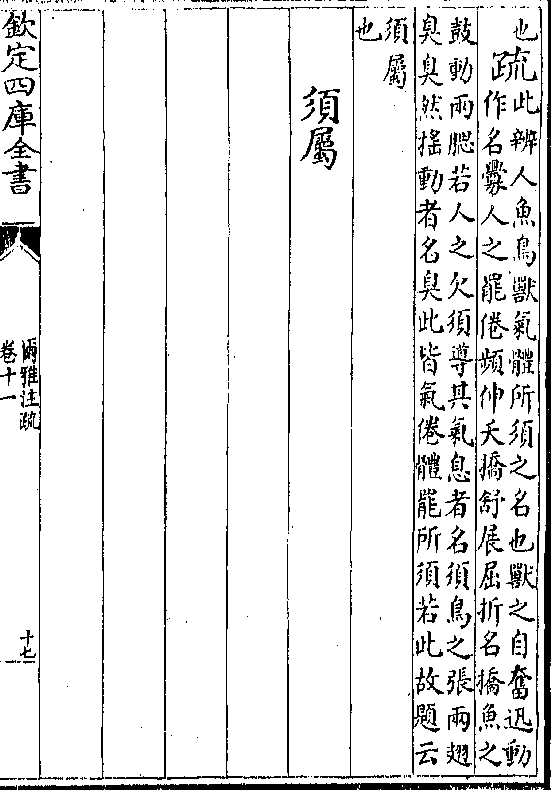 也
疏
此辨人魚鳥獸氣體所須之名也獸之自奮迅動
作名釁人之罷倦頻伸夭撟舒展屈折名撟魚之
鼓動兩腮若人之欠須導其氣息者名須鳥之張兩翅
臭臭然搖動者名臭此皆氣倦體罷所須若此故題云
須屬
也
須屬
欽定四庫全書
爾雅注疏
卷十一
十七